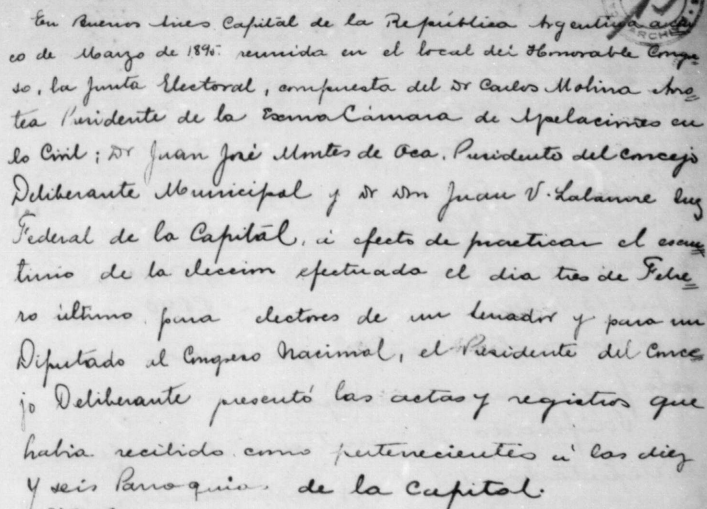 En Buenos Aires Capital de la República Argentina a cin
co de Marzo de 1895. reunida en el local del Honorable Congre
so, la Junta Electoral, compuesta del Dr Carlos Molina Arro=
tea Presidente de la Exma Cámara de Apelaciones en
lo Civil; Dr Juan José Montes de Oca, Presidente del Concejo
Deliberante Municipal y Dr Don Juan V. Lalanne Juez
Federal de la Capital, á efecto de practicar el escru=
tinio de la eleccion efectuada el dia tres de Febre=
ro último para electores de un Senador y para un
Diputado al Congreso Nacional, el Presidente del Conce=
jo Deliberante presentó las actas y registros que
habia recibido como pertenecientes á las diez
y seis Parroquias de la Capital.